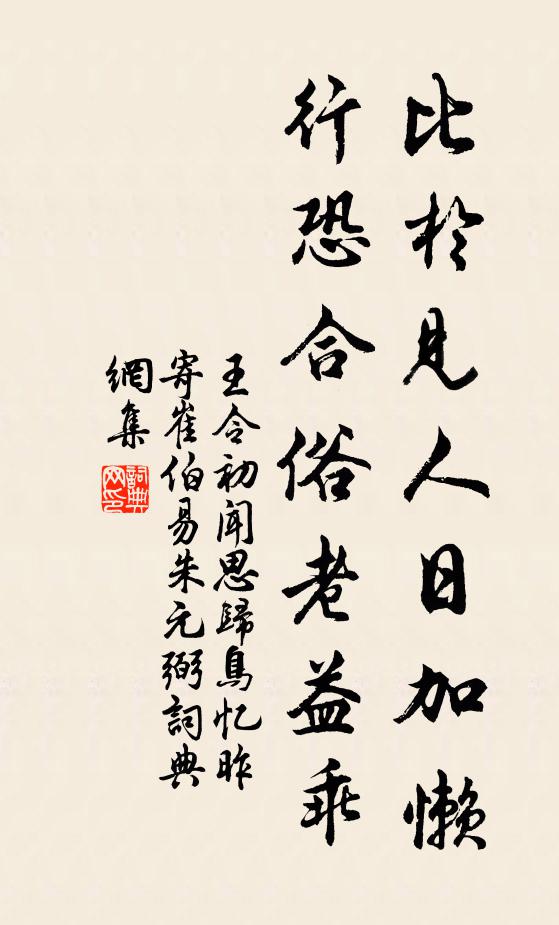 比於見人日加懶
行恐合俗老益乖
王令初闻思歸鳥忆昨
寄崔伯易朱元弼詞典
網集
詞典
网印